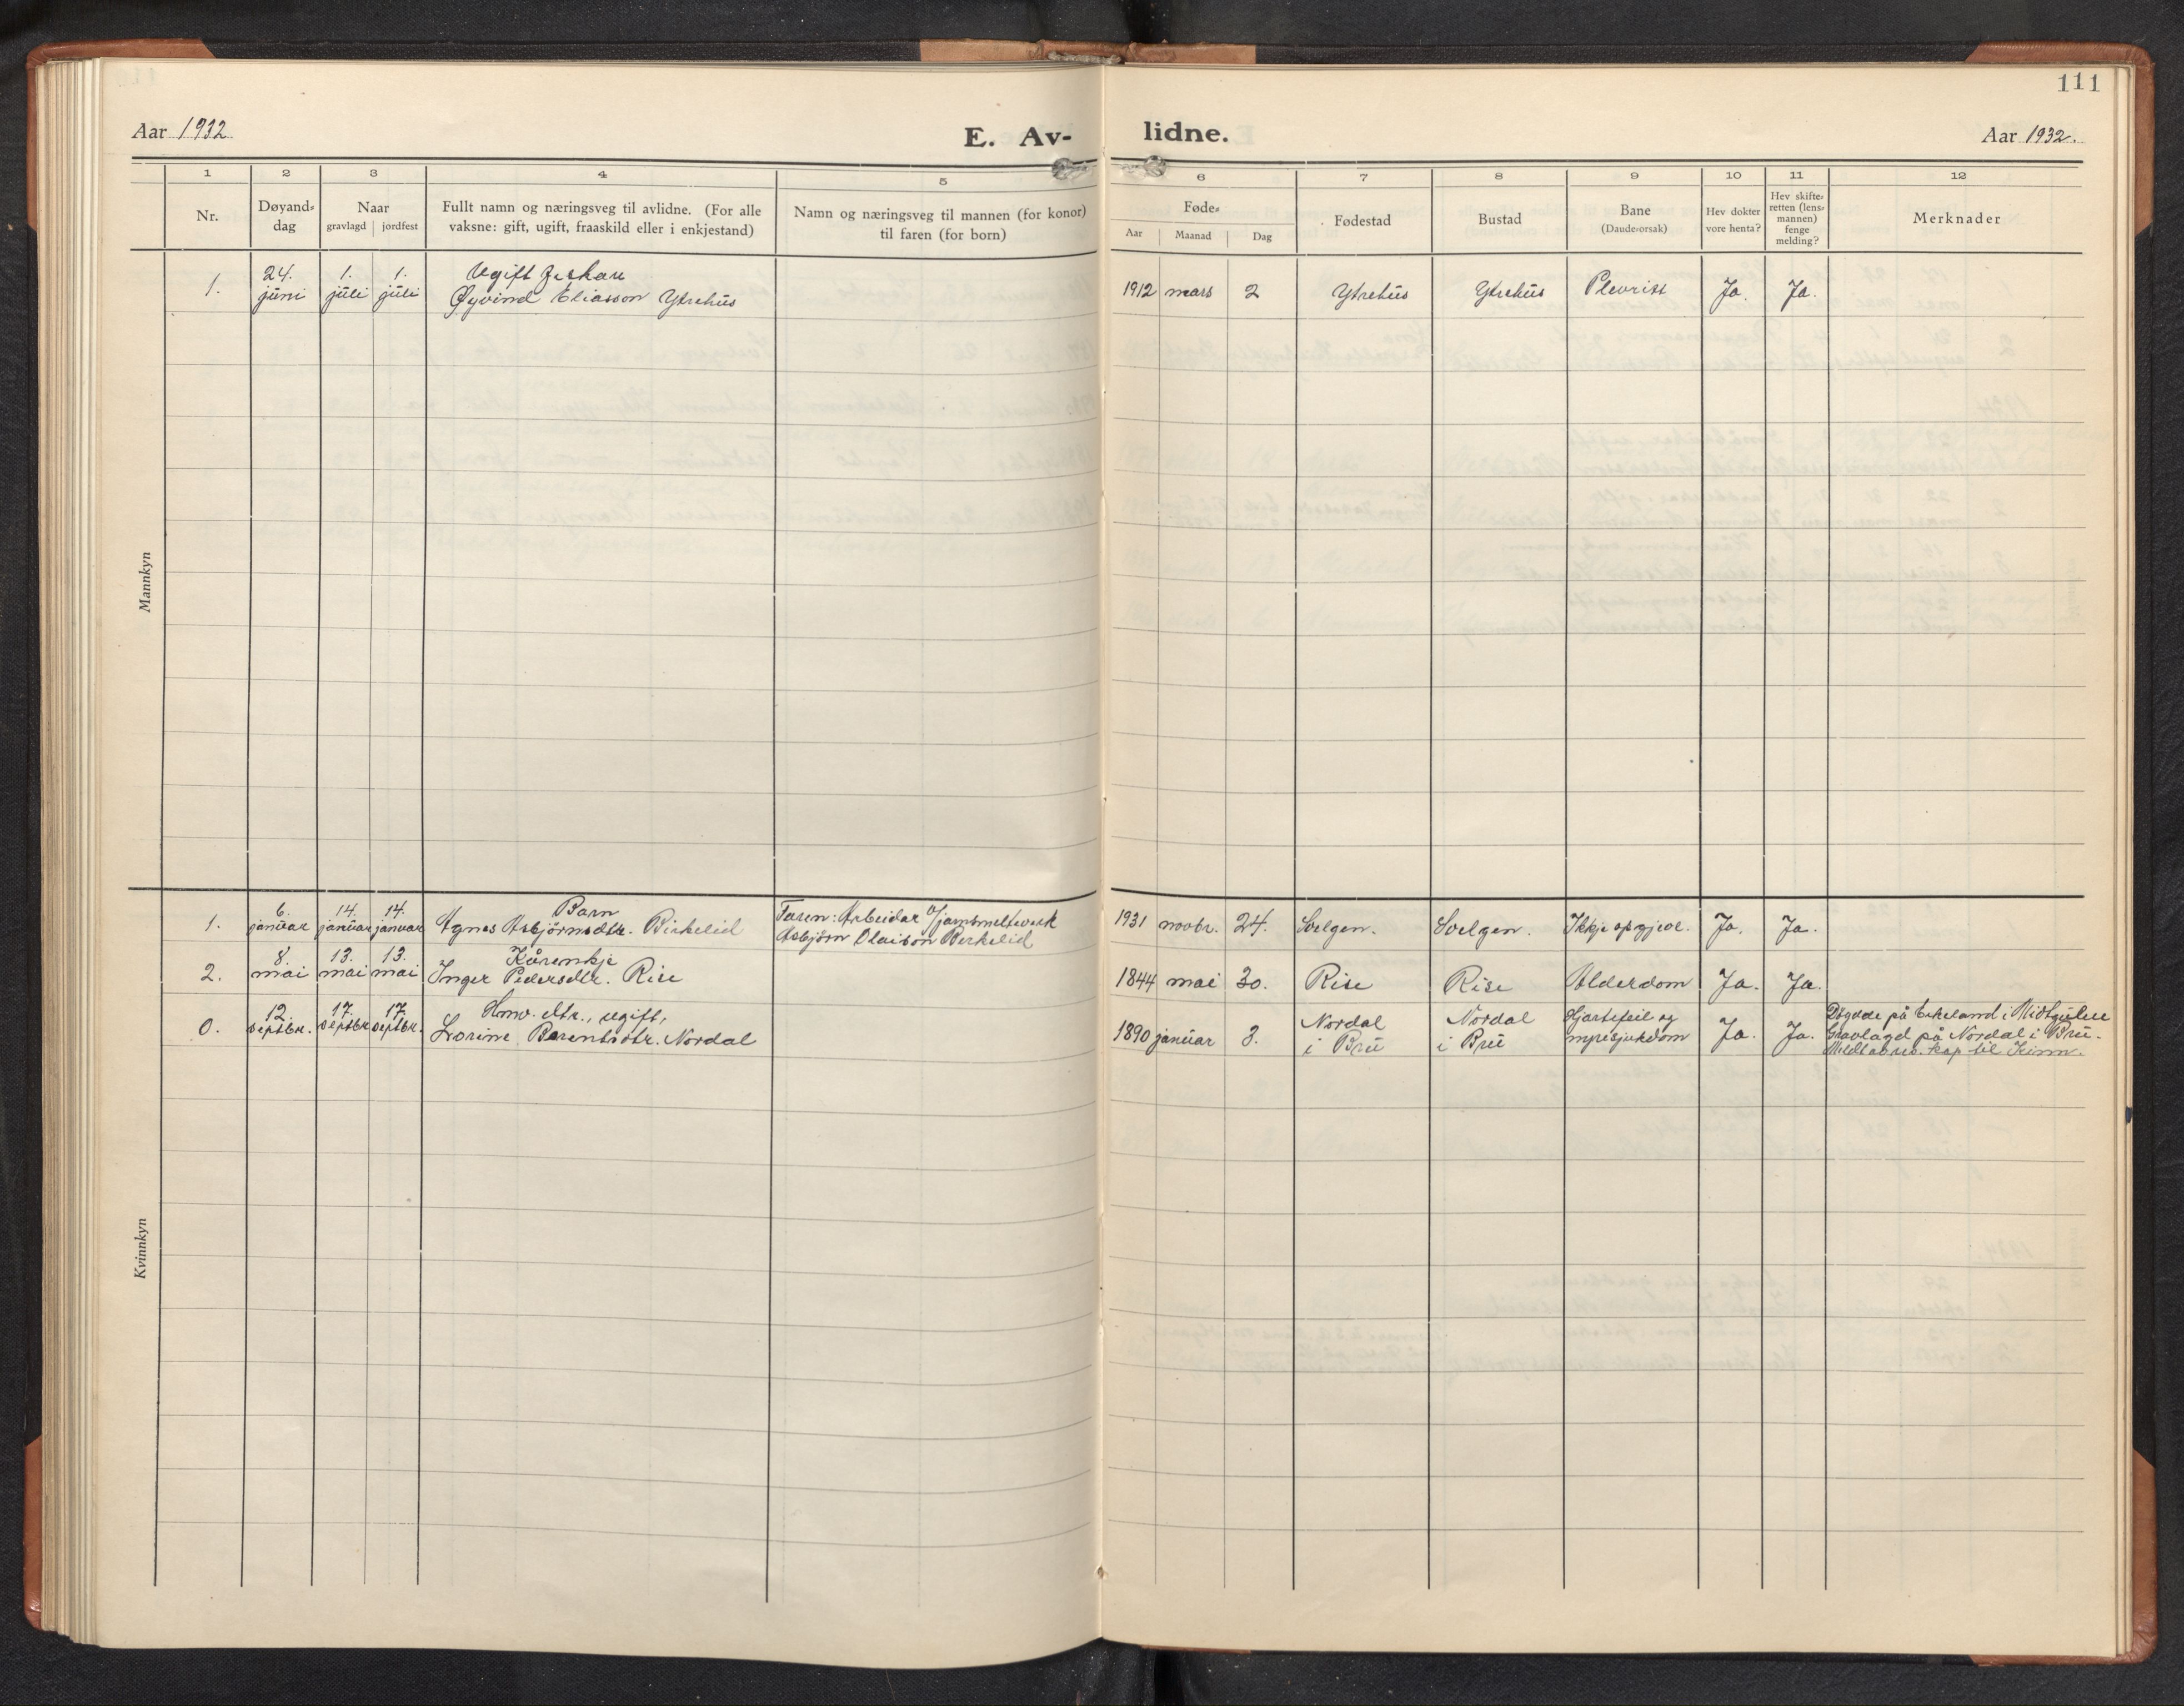 111
Aar 1932
E. Av-
lidne.
Aar 1932.
1 2 3 4 5 6 7 8 9 10 11 12
Nr.
Døyand-
dag
Naar
gravlagd | jordfest
Fullt namn og næringsveg til avlidne. (For alle
vaksne: gift, ugift, fraaskild eller i enkjestand)
Namn og næringsveg til mannen (for konor)
til faren (for born)
Føde-
Aar | Maanad | Dag
Fødestad
Bustad
Bane
(Daude-orsak)
Hev dokter
vore henta?
Hev skifte-
retten (lens-
mannen)
fenge
melding?
Merknader
Mannkyn
24. 1. 1. Ugift fiskar
1. juni juli juli Øyvind Eliasson Ytrehus 1912 mars 2 Ytrehus Ytrehus Plevritt Ja. Ja.
Kvinnkyn
6. 14. 14. Barn Faren: Arbeidar v/jarnsmelteverk
1. januar januar januar Agnes Asbjörnsdtr. Birkelid Asbjörn Olaison Berkelid 1931 novbr. 24. Svelgen. Svelgen. Ikkje opgjeve. Ja. Ja.
8. 13. 13. Kårenkje
2. mai mai mai Inger Pedersdtr. Rise 1844 mai 30. Rise Rise Alderdom Ja. Ja.
12. 17. 17. Hmv. dtr., ugift, Nordal Nordal Hjartefeil og Döydde på Eikeland i Midtgulen
0. septbr. septbr septbr. Lorine Barentsdtr. Nordal 1890 januar 3. i Bru i Bru myresjukdom Ja. Ja. Gravlagd på Nordal i Bru.
Meldt av res. kap til Kinn.